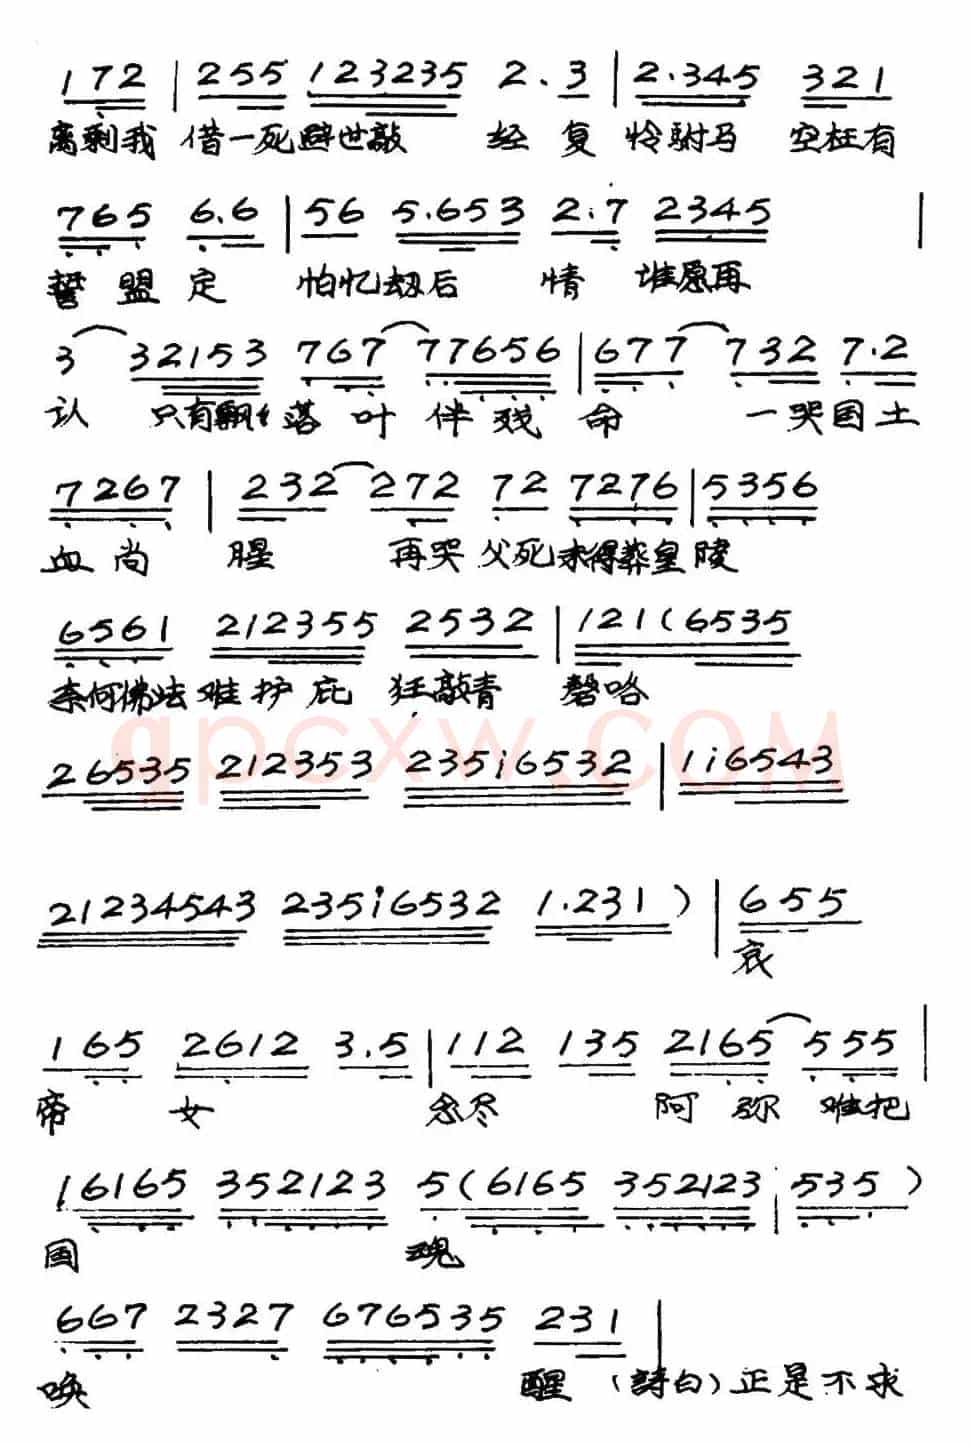 1 7 2 | 2 5 5 1 2 3 2 3 5 2 . 3 | 2 . 3 4 5 3 2 1
离剩我 借一死避世敲 经 复 怜驸马 空枉有
7 6 5 6 . 6 | 5 6 5 . 6 5 3 2 . 7 2 3 4 5 |
誓盟定 怕忆劫后 情 谁愿再
3 3 2 1 5 3 7 6 7 7 7 6 5 6 | 6 7 7 7 3 2 7 . 2
认 只有飘 落叶伴残 命 一哭国土
7 2 6 7 | 2 3 2 2 7 2 7 2 7 2 7 6 | 5 3 5 6
血尚 腥 再哭父死未得葬皇陵
6 5 6 1 2 1 2 3 5 5 2 5 3 2 | 1 2 1 ( 6 5 3 5
奈何佛法难护庇 狂敲青 磬咯
qpcxw.COM
2 6 5 3 5 2 1 2 3 5 3 2 3 5 i 6 5 3 2 | 1 i 6 5 4 3
2 1 2 3 4 5 4 3 2 3 5 i 6 5 3 2 1 . 2 3 1 ) | 6 5 5
哀
1 6 5 2 6 1 2 3 . 5 | 1 1 2 1 3 5 2 1 6 5 5 5 5 |
帝 女 念尽 阿 弥 难把
1 6 1 6 5 3 5 2 1 2 3 5 ( 6 1 6 5 3 5 2 1 2 3 | 5 3 5 )
国 魂
6 6 7 2 3 2 7 6 7 6 5 3 5 2 3 1 |
唤 醒 (詩白) 正是不求